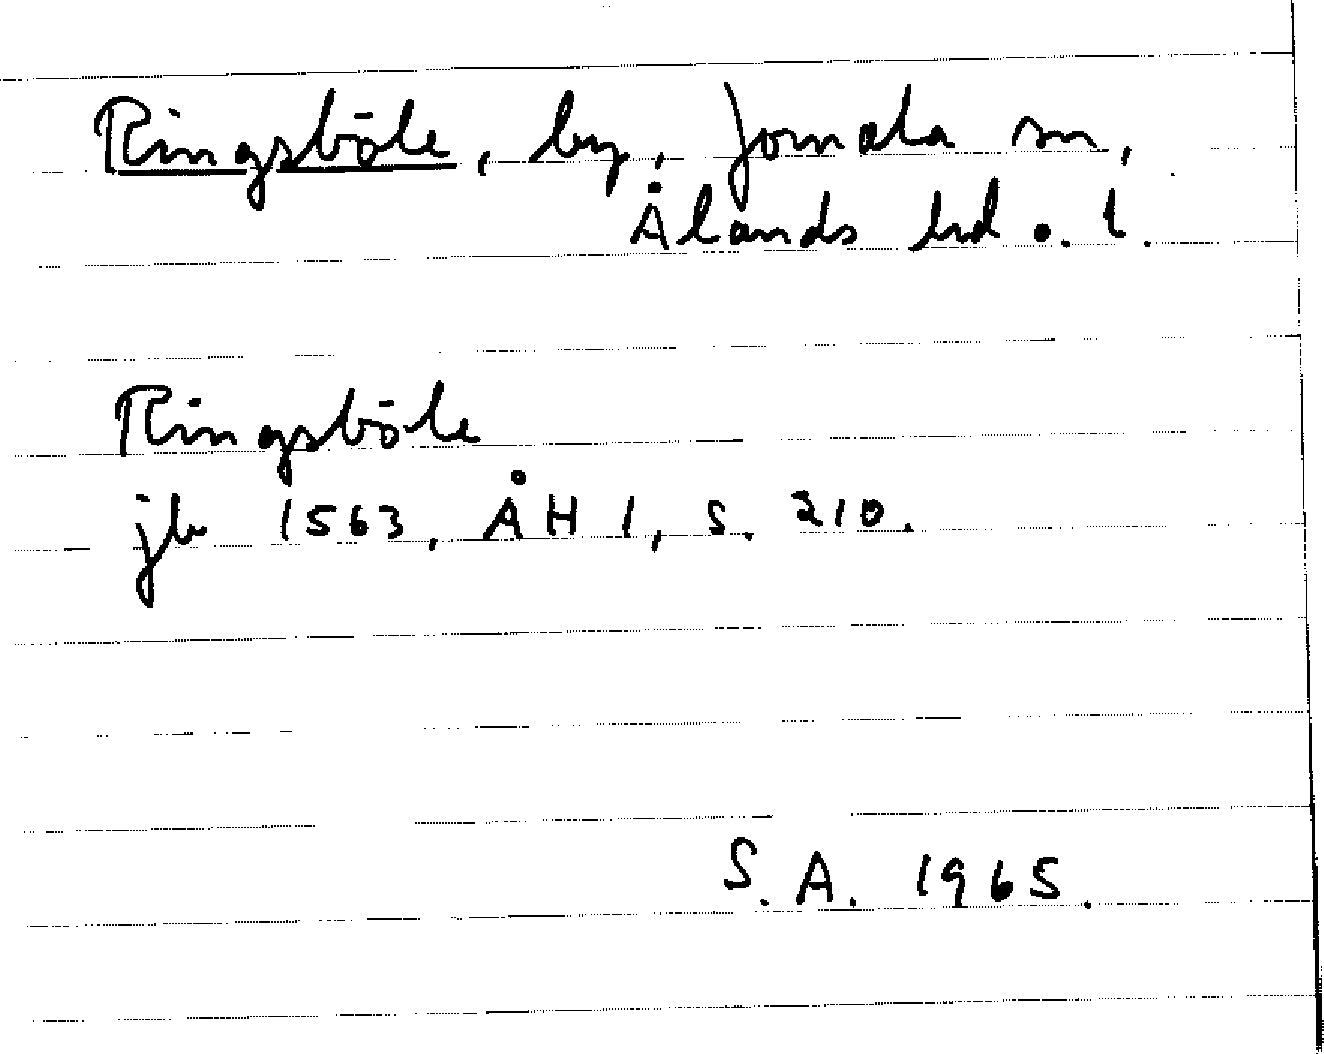 Ringsböle, by, Jomala sn,
Ålands hd o. l.
Ringsböle
jb 1563, ÅH 1, s. 210.
S. A. 1965.